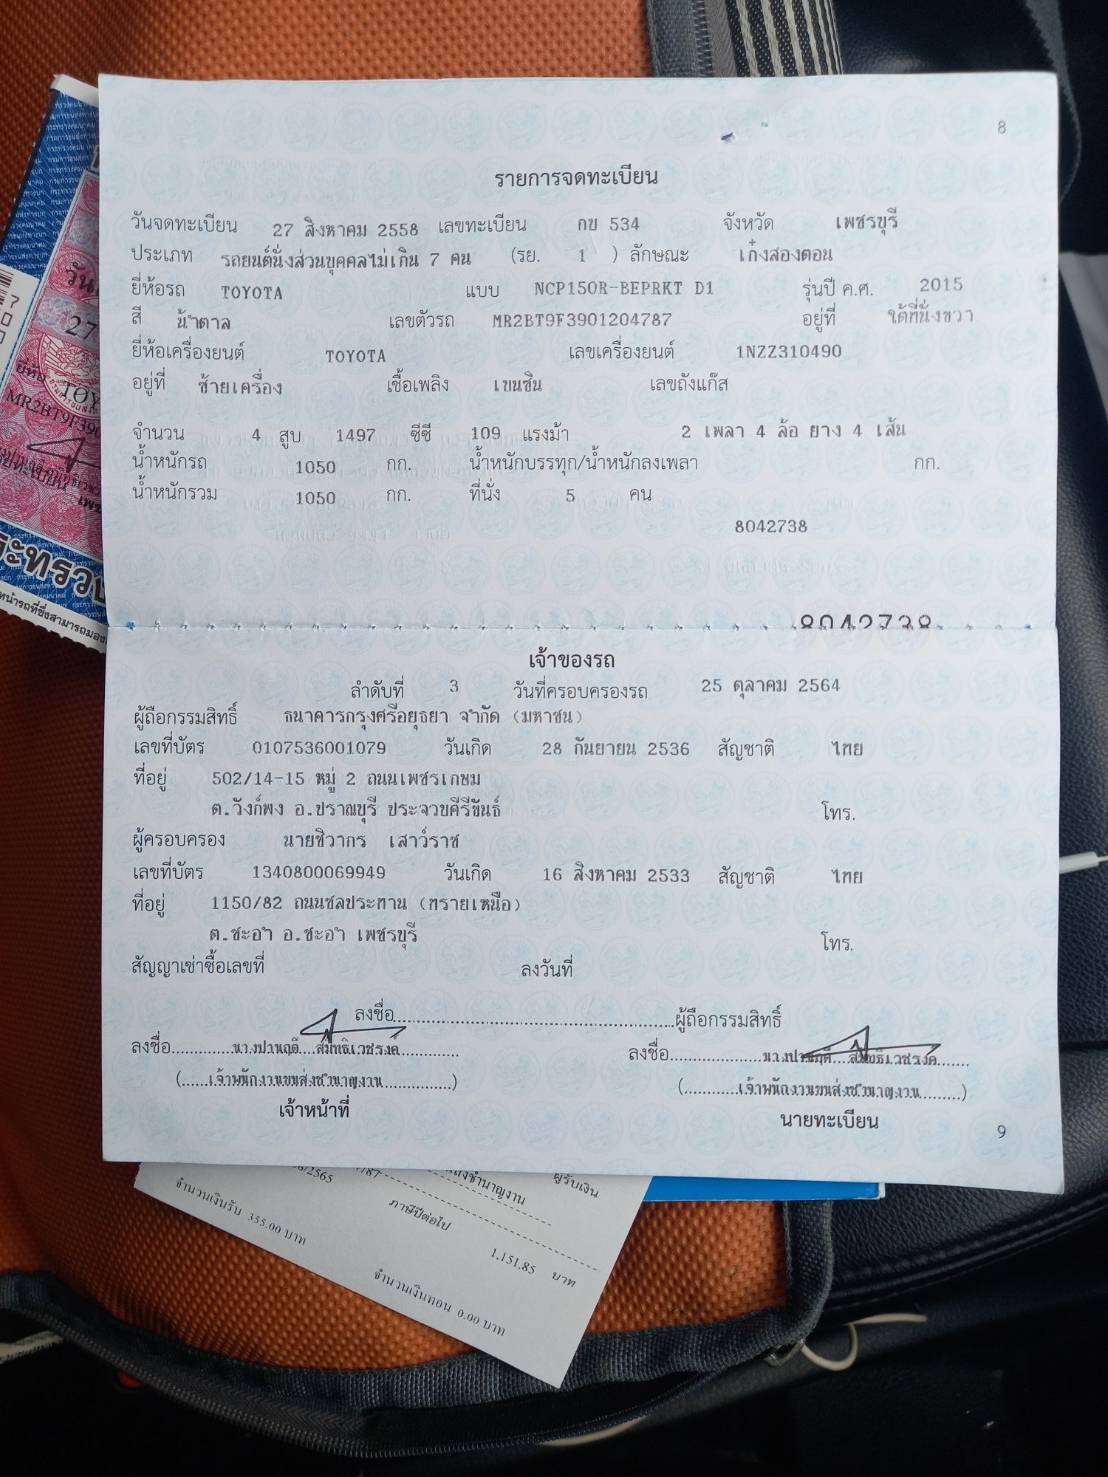 8
รายการจดทะเบียน
วันจดทะเบียน 27 สิงหาคม 2558 เลขทะเบียน กข 534 จังหวัด เพชรบุรี
ประเภท รถยนต์นั่งส่วนบุคคลไม่เกิน 7 คน (รย. 1 ) ลักษณะ เก๋งสองตอน
ยี่ห้อรถ TOYOTA แบบ NCP150R-BEPRKT D1 รุ่นปี ค.ศ. 2015
สี น้ำตาล เลขตัวรถ MR2BT9F3901204787 อยู่ที่ ใต้ที่นั่งขวา
ยี่ห้อเครื่องยนต์ TOYOTA เลขเครื่องยนต์ 1NZZ310490
อยู่ที่ ซ้ายเครื่อง เชื้อเพลิง เบนซิน เลขถังแก๊ส
จำนวน 4 สูบ 1497 ซีซี 109 แรงม้า 2 เพลา 4 ล้อ ยาง 4 เส้น
น้ำหนักรถ 1050 กก. น้ำหนักบรรทุก/น้ำหนักลงเพลา กก.
น้ำหนักรวม 1050 กก. ที่นั่ง 5 คน
8042738
8042738
เจ้าของรถ
ลำดับที่ 3 วันที่ครอบครองรถ 25 ตุลาคม 2564
ผู้ถือกรรมสิทธิ์ ธนาคารกรุงศรีอยุธยา จำกัด (มหาชน)
เลขที่บัตร 0107536001079 วันเกิด 28 กันยายน 2536 สัญชาติ ไทย
ที่อยู่ 502/14-15 หมู่ 2 ถนนเพชรเกษม
ต.วังก์พง อ.ปราณบุรี ประจวบคีรีขันธ์ โทร.
ผู้ครอบครอง นายชิวากร เสาว์ราช
เลขที่บัตร 1340800069949 วันเกิด 16 สิงหาคม 2533 สัญชาติ ไทย
ที่อยู่ 1150/82 ถนนชลประทาน (ทรายเหนือ)
ต.ชะอำ อ.ชะอำ เพชรบุรี โทร.
สัญญาเช่าซื้อเลขที่ ลงวันที่
ลงชื่อ ผู้ถือกรรมสิทธิ์
ลงชื่อ ลงชื่อ
(เจ้าพนักงานขนส่งชำนาญงาน) (เจ้าพนักงานขนส่งชำนาญงาน)
เจ้าหน้าที่ นายทะเบียน
9
ผู้รับเงิน
ภาษีปีต่อไป 1,151.85 บาท
จำนวนเงินรับ 355.00 บาท จำนวนเงินทอน 0.00 บาท